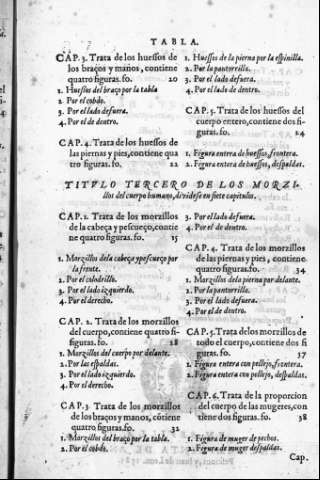 TABLA.
CAP. 3. Trata de los huessos de
los braços y manos, contiene
quatro figuras. fo. 20
1. Huessos del braço por la tabla
2. Por el cobdo.
3. Por el lado defuera.
4. Por el de dentro.
CAP. 4. Trata de los huessos de
las piernas y pies, contiene qua
tro figuras. fo. 22
1. Huessos de la pierna por la espinilla.
2. Por la pantorrilla.
3. Por el lado defuera.
4. Por el lado de dentro.
CAP. 5. Trata de los huessos del
cuerpo entero, contiene dos fi-
guras. fo. 24
1. Figura entera de huessos, frontera.
2. Figura entera de huessos, despaldas.
TITVLO TERCERO DE LOS MORZI-
llos del cuerpo humano, dividese en siete capitulos.
CAP. 1. Trata de los morzillos
de la cabeça y pescueço, contie
ne quatro figuras. fo. 15
1. Morzillos dela cabeça y pescueço por
la frente.
2. Por el colodrillo.
3. Por el lado izquierdo.
4. Por el derecho.
CAP. 2. Trata de los morzillos
del cuerpo, contiene quatro fi-
figuras. fo. 28
1. Morzillos del cuerpo por delante.
2. Por las espaldas.
3. Por el lado izquierdo.
4. Por el derecho.
CAP. 3 Trata de los morzillos
de los braços y manos, cõtiene
quatro figuras. fo. 32
1. Morzillos del braço por la tabla.
2. Por el cobdo.
3. Por el lado defuera.
4. Por el de dentro.
CAP. 4. Trata de los morzillos
de las piernas y pies, contiene
quatro figuras. fo. 34
1. Morzillos dela pierna por delante.
2. Por la pantorrilla.
3. Por el lado defuera.
4. Por el de dentro.
CAP. 5. Trata delos morzillos de
todo el cuerpo, contiene dos fi
guras. fo. 37
1. Figura entera con pellejo, frontera.
2. Figura entera con pellejo, despaldas.
CAP. 6. Trata de la proporcion
del cuerpo de las mugeres, con
tiene dos figuras. fo. 38
1. Figura de muger de pechos.
2. Figura de muger despaldas.
Cap.